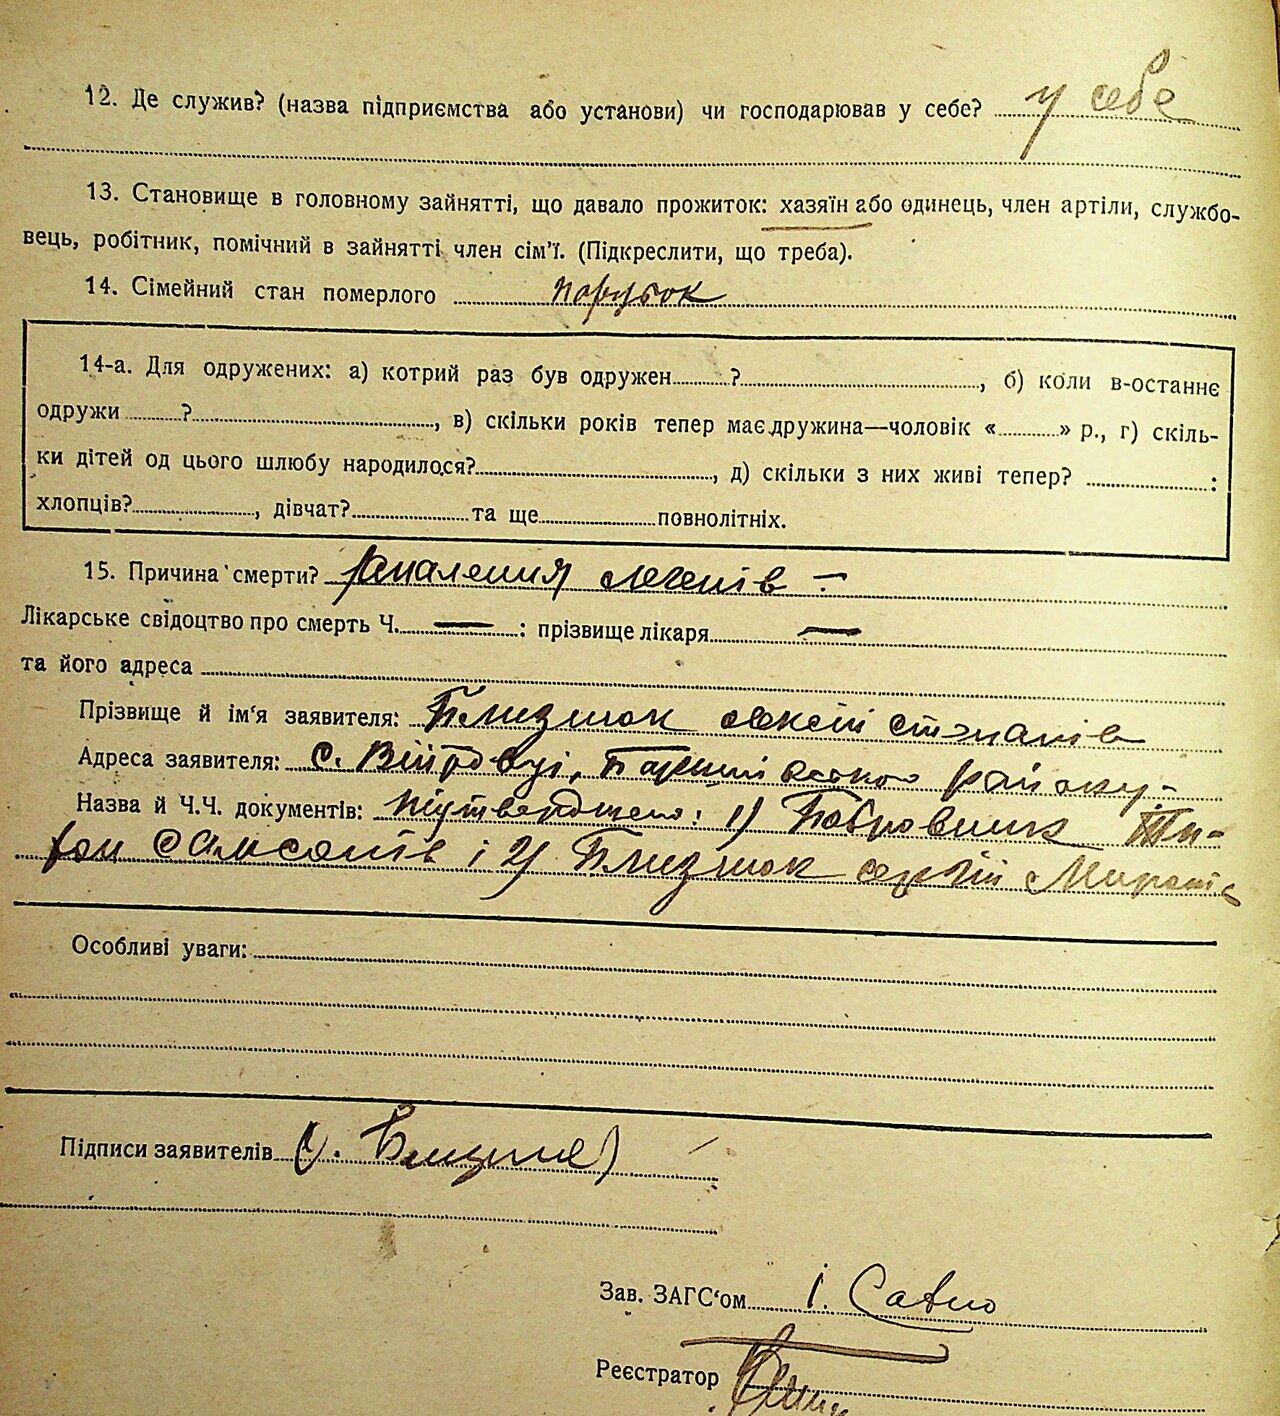 12. Де служив? (назва підприємства або установи) чи господарював у себе? у себе
13. Становище в головному зайнятті, що давало прожиток: хазяїн або одинець, член артіли, службо-
вець, робітник, помічний в зайнятті член сім'ї. (Підкреслити, що треба).
14. Сімейний стан померлого парубок
14-а. Для одружених: а) котрий раз був одружен ? , б) коли в-останнє
одружи ? , в) скільки років тепер має дружина—чоловік « » р., г) скіль-
ки дітей од цього шлюбу народилося? , д) скільки з них живі тепер? :
хлопців? , дівчат? та ще повнолітніх.
15. Причина смерти? запалення легенів —
Лікарське свідоцтво про смерть Ч. — : прізвище лікаря —
та його адреса
Прізвище й ім'я заявителя: Близнюк Олексій Степанів
Адреса заявителя: с. Війтовці, району
Назва й Ч.Ч. документів: 1) Бобровник Ти-
фон Самсонів і 2) Близнюк Сергій Миронів
Особливі уваги:
Підписи заявителів О. Близнюк
Зав. ЗАГС'ом І. Савко
Реєстратор